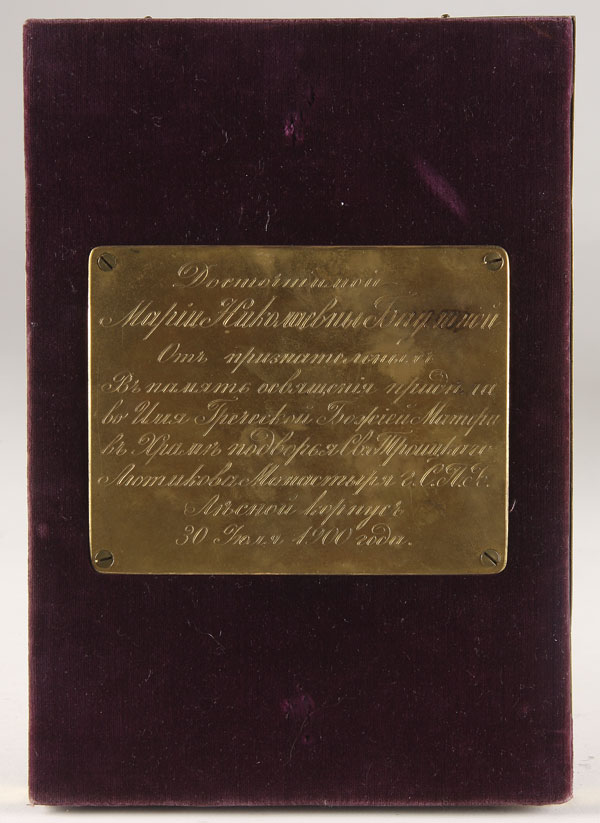 Досточтимой
Маріи Николаевны
Отъ признательныхъ
Въ память освященія придѣла
во Имя Греческой Божіей Матери
въ Храмѣ подворья Св. Троицкаго
Лютикова Монастыря г. С.П.Б.
Лѣсной корпусъ
30 Іюля 1900 года.